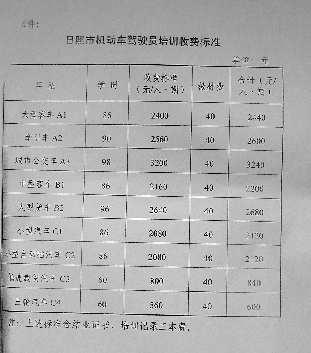 附件：
日照市机动车驾驶员培训收费标准
单位：元
车型 学时 收费标准（元/人·期） 教材费 合计（元/人·期）
大型客车 A1 86 2400 40 2440
牵引车 A2 90 2560 40 2600
城市公交车 A3 98 3200 40 3240
中型客车 B1 86 2160 40 2200
大型货车 B2 96 2640 40 2680
小型汽车 C1 86 2080 40 2120
小型自动挡汽车 C2 2080 40 2120
低速载货汽车 C3 60 800 40 840
三轮汽车 C4 60 560 40 600